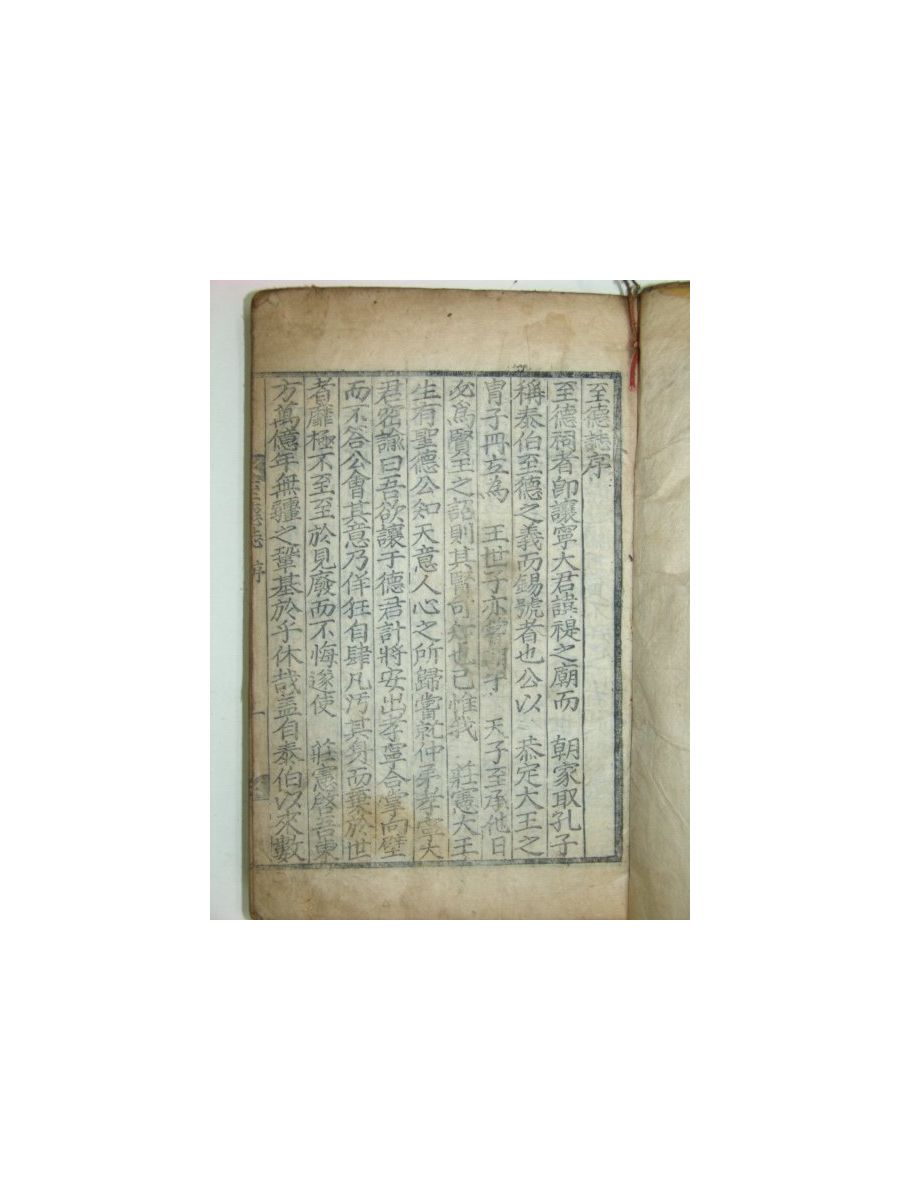 至德誌序
至德祠者卽讓寧大君諱禔之廟而 朝家取孔子
稱泰伯至德之義而錫號者也公以 恭定大王之
胄子冊立為 王世子亦 天子至承他日
必為賢王之詔則其賢可知也已惟我 莊憲大王
生有聖德公知天意人心之所歸嘗就仲弟孝寧大
君密諭曰吾欲讓于德君計將安出孝寧合掌向壁
而不答公會其意乃佯狂自肆凡汚其身而棄於世
者靡極不至至於見廢而不悔遂使 莊憲啓吾東
方萬億年無疆之鞏基於乎休哉盖自泰伯以來數
至德誌 序 一